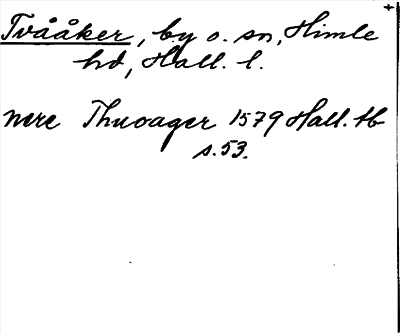 Tvååker, by o. sn, Himle
hd, Hall. l.
nere Thuoager 1579 Hall. tb
s. 53.